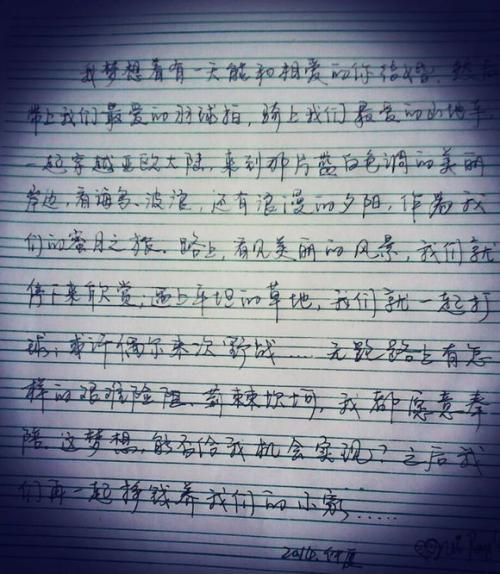 我梦想着有一天能和相爱的你结婚，然后
带上我们最爱的羽球拍，骑上我们最爱的山地车
一起穿越亚欧大陆，来到那片蓝白色调的美丽
岸边，看海鸟、波浪，还有浪漫的夕阳，作为我
们的蜜月之旅。路上，看见美丽的风景，我们就
停下来欣赏；遇上平坦的草地，我们就一起打
球；或许偶尔来次野战……无论路上有怎
样的艰难险阻、荆棘坎坷，我都愿意奉
陪。这梦想，能否给我机会实现？之后我
们再一起挣钱养我们的小家……
2014.仲夏